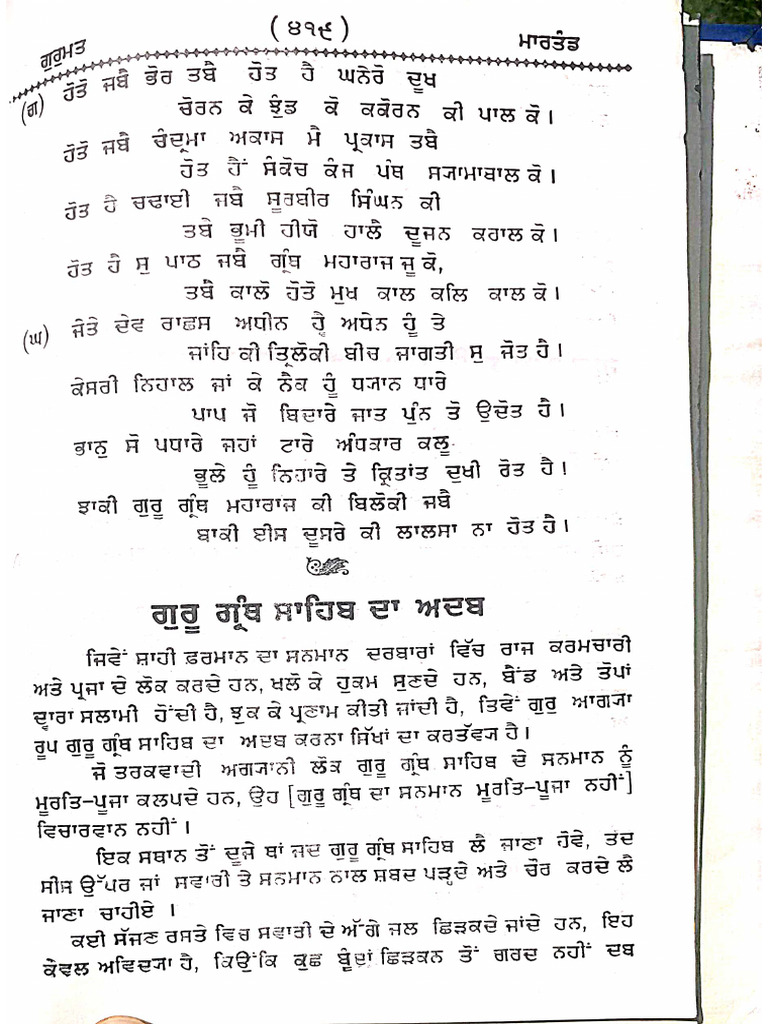 ( ੪੧੯ )
ਗੁਰੁਮਤ ਮਾਰਤੰਡ
(ਗ) ਹੋਤੋ ਜਬੈ ਭੋਰ ਤਬੈ ਹੋਤ ਹੈ ਘਨੇਰੋ ਦੂਖ
ਚੋਰਨ ਕੇ ਝੁੰਡ ਕੋ ਕਕੋਰਨ ਕੀ ਪਾਲ ਕੋ।
ਹੋਤੋ ਜਬੈ ਚੰਦ੍ਰਮਾ ਅਕਾਸ ਮੈ ਪ੍ਰਕਾਸ ਤਬੈ
ਹੋਤ ਹੈਂ ਸੰਕੋਚ ਕੰਜ ਪੰਥ ਸ੍ਯਾਮਾਬਾਲ ਕੋ।
ਹੋਤ ਹੈ ਚਢਾਈ ਜਬੈ ਸੂਰਬੀਰ ਸਿੰਘਨ ਕੀ
ਤਬੇ ਭੂਮੀ ਹੀਯੋ ਹਾਲੈ ਦੂਜਨ ਕਰਾਲ ਕੋ।
ਹੋਤ ਹੈ ਸੁ ਪਾਠ ਜਬੈ ਗ੍ਰੰਥ ਮਹਾਰਾਜ ਜੂ ਕੋ,
ਤਬੈ ਕਾਲੋ ਹੋਤੋ ਮੁਖ ਕਾਲ ਕਲਿ ਕਾਲ ਕੋ।
(ਘ) ਜੇਤੇ ਦੇਵ ਰਾਛਸ ਅਧੀਨ ਹ੍ਵੈ ਅਧੇਨ ਹੂੰ ਤੇ
ਜਾਂਹਿ ਕੀ ਤ੍ਰਿਲੋਕੀ ਬੀਚ ਜਾਗਤੀ ਸੁ ਜੋਤ ਹੈ।
ਕੇਸਰੀ ਨਿਹਾਲ ਜਾਂ ਕੇ ਨੈਕ ਹੂੰ ਧ੍ਯਾਨ ਧਾਰੇ
ਪਾਪ ਜੋ ਬਿਦਾਰੇ ਜਾਤ ਪੁੰਨ ਤੋ ਉਦੋਤ ਹੈ।
ਭਾਨੁ ਸੋ ਪਧਾਰੇ ਜਹਾਂ ਟਾਰੇ ਅੰਧਕਾਰ ਕਲੂ
ਭੂਲੇ ਹੂੰ ਨਿਹਾਰੇ ਤੇ ਕ੍ਰਿਤਾਂਤ ਦੁਖੀ ਰੋਤ ਹੈ।
ਝਾਕੀ ਗੁਰੂ ਗ੍ਰੰਥ ਮਹਾਰਾਜ ਕੀ ਬਿਲੋਕੀ ਜਬੈ
ਬਾਕੀ ਈਸ ਦੂਸਰੇ ਕੀ ਲਾਲਸਾ ਨਾ ਹੋਤ ਹੈ।
ਗੁਰੂ ਗ੍ਰੰਥ ਸਾਹਿਬ ਦਾ ਅਦਬ
ਜਿਵੇਂ ਸ਼ਾਹੀ ਫ਼ਰਮਾਨ ਦਾ ਸਨਮਾਨ ਦਰਬਾਰਾਂ ਵਿੱਚ ਰਾਜ ਕਰਮਚਾਰੀ
ਅਤੇ ਪ੍ਰਜਾ ਦੇ ਲੋਕ ਕਰਦੇ ਹਨ, ਖਲੋ ਕੇ ਹੁਕਮ ਸੁਣਦੇ ਹਨ, ਬੈਂਡ ਅਤੇ ਤੋਪਾਂ
ਦ੍ਵਾਰਾ ਸਲਾਮੀ ਹੋਂਦੀ ਹੈ, ਝੁਕ ਕੇ ਪ੍ਰਣਾਮ ਕੀਤੀ ਜਾਂਦੀ ਹੈ, ਤਿਵੇਂ ਗੁਰੁ ਆਗ੍ਯਾ
ਰੂਪ ਗੁਰੂ ਗ੍ਰੰਥ ਸਾਹਿਬ ਦਾ ਅਦਬ ਕਰਨਾ ਸਿੱਖਾਂ ਦਾ ਕਰਤੱਵ੍ਯ ਹੈ।
ਜੋ ਤਰਕਵਾਦੀ ਅਗ੍ਯਾਨੀ ਲੋਕ ਗੁਰੂ ਗ੍ਰੰਥ ਸਾਹਿਬ ਦੇ ਸਨਮਾਨ ਨੂੰ
ਮੂਰਤਿ–ਪੂਜਾ ਕਲਪਦੇ ਹਨ, ਉਹ [ਗੁਰੂ ਗ੍ਰੰਥ ਦਾ ਸਨਮਾਨ ਮੂਰਤਿ–ਪੂਜਾ ਨਹੀਂ]
ਵਿਚਾਰਵਾਨ ਨਹੀਂ।
ਇਕ ਸਥਾਨ ਤੋਂ ਦੂਜੇ ਥਾਂ ਜਦ ਗੁਰੂ ਗ੍ਰੰਥ ਸਾਹਿਬ ਲੈ ਜਾਣਾ ਹੋਵੇ, ਤਦ
ਸੀਸ ਉੱਪਰ ਜਾਂ ਸਵਾਰੀ ਤੇ ਸਨਮਾਨ ਨਾਲ ਸ਼ਬਦ ਪੜ੍ਹਦੇ ਅਤੇ ਚੌਰ ਕਰਦੇ ਲੈ
ਜਾਣਾ ਚਾਹੀਏ ।
ਕਈ ਸੱਜਣ ਰਸਤੇ ਵਿਚ ਸਵਾਰੀ ਦੇ ਅੱਗੇ ਜਲ ਛਿੜਕਦੇ ਜਾਂਦੇ ਹਨ, ਇਹ
ਕੇਵਲ ਅਵਿਦ੍ਯਾ ਹੈ, ਕਿਉਂਕਿ ਕੁਛ ਬੂੰਦਾਂ ਛਿੜਕਨ ਤੋਂ ਗਰਦ ਨਹੀਂ ਦਬ